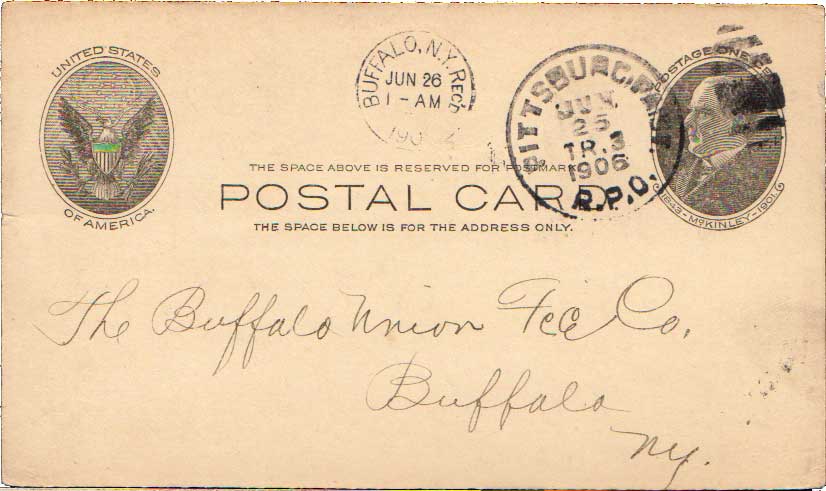 UNITED STATES
OF AMERICA.
BUFFALO, N.Y. REC'D
JUN 26
1 - AM
190
PITTSBURG,
JUN
25
TR. 3
1906
R.P.O.
POSTAGE ONE
1843 - McKINLEY - 1901.
THE SPACE ABOVE IS RESERVED FOR POSTMARK
POSTAL CARD
THE SPACE BELOW IS FOR THE ADDRESS ONLY.
The Buffalo Union Fce Co.
Buffalo
NY.